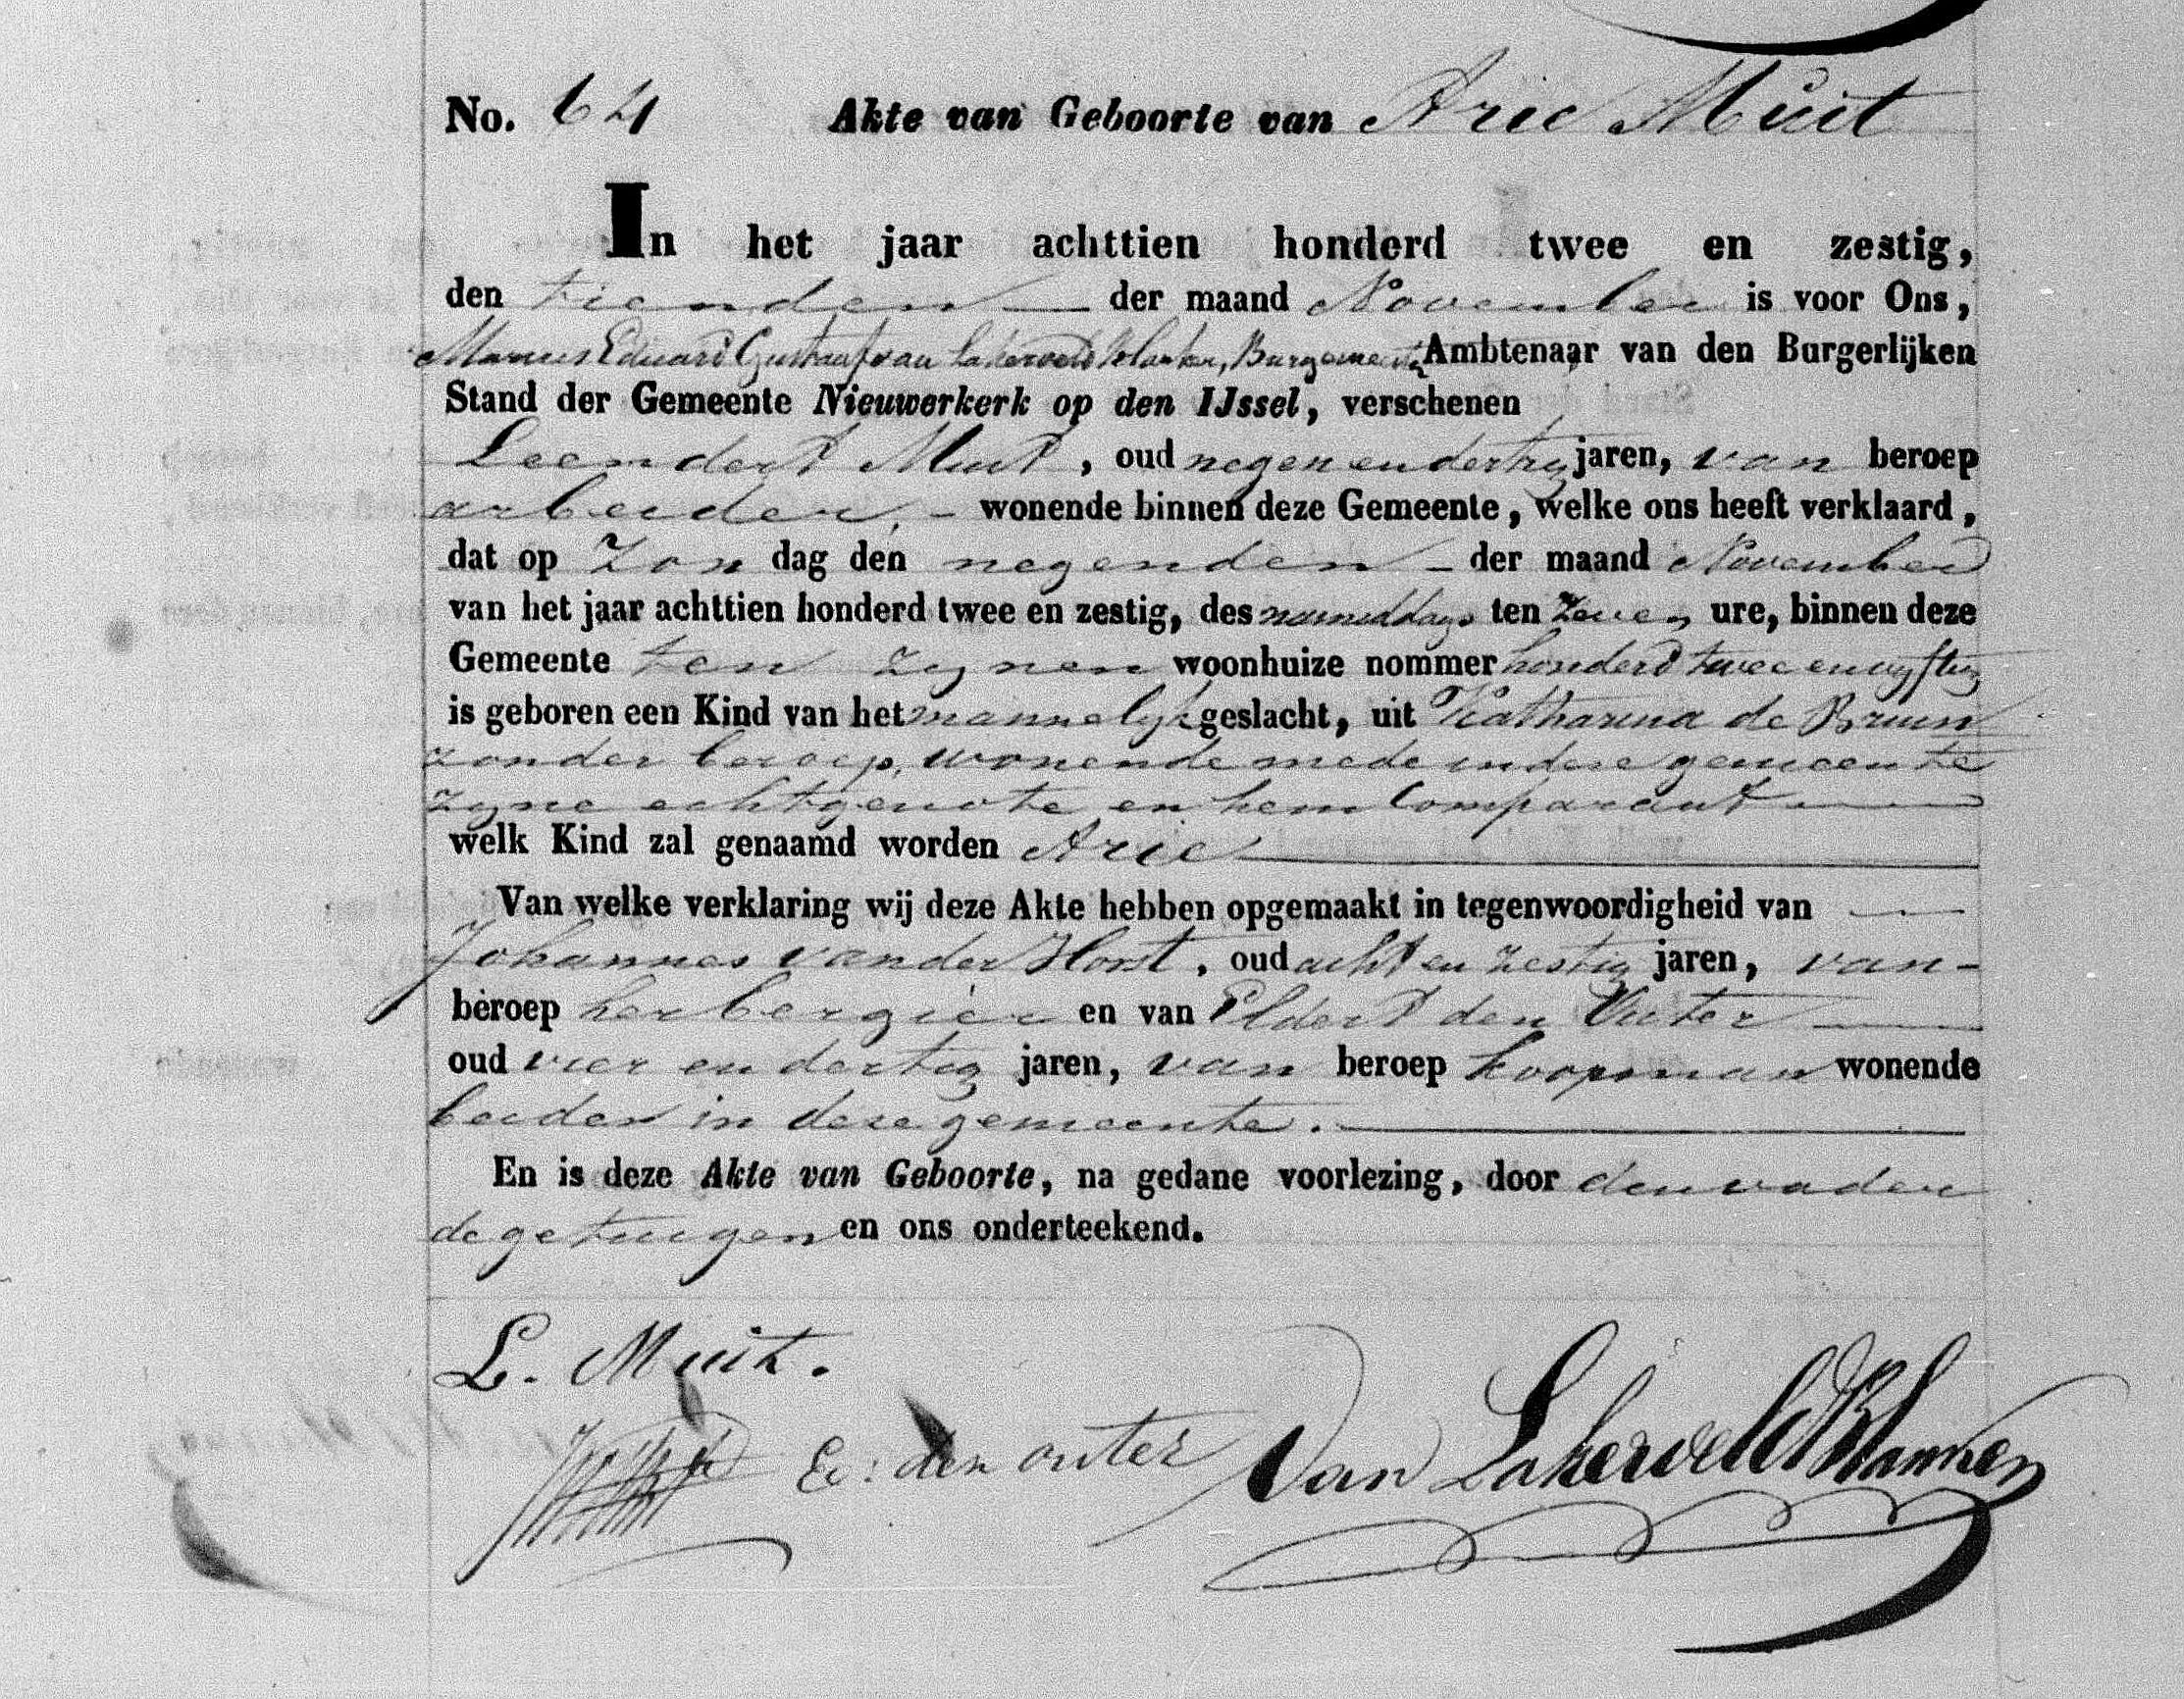 No. 64 Akte van Geboorte van Arie Muit
In het jaar achttien honderd twee en zestig,
den tienden der maand November is voor Ons,
Marius Eduard Gustaaf van Lakerveld Blanken, Burgemeester Ambtenaar van den Burgerlijken
Stand der Gemeente Nieuwerkerk op den IJssel, verschenen
Leendert Muit, oud negen en dertig jaren, van beroep
arbeider, - wonende binnen deze Gemeente, welke ons heeft verklaard,
dat op Zon dag den negenden - der maand November
van het jaar achttien honderd twee en zestig, des namiddags ten zeven ure, binnen deze
Gemeente ten zynen woonhuize nommer honderd twee en vyftig
is geboren een Kind van het mannelyk geslacht, uit Katharina de Bruin
zonder beroep, wonende mede in deze gemeente
zyne echtgenote en hem Comparant
welk Kind zal genaamd worden Arie
Van welke verklaring wij deze Akte hebben opgemaakt in tegenwoordigheid van
Johannes van der Horst, oud acht en zestig jaren, van-
beroep herbergier en van Eldert den Outer
oud vier en dertig jaren, van beroep koopman wonende
beiden in deze gemeente.
En is deze Akte van Geboorte, na gedane voorlezing, door den vader
de getuigen en ons onderteekend.
L. Muit.
E: den outer Van Lakerveld Blanken